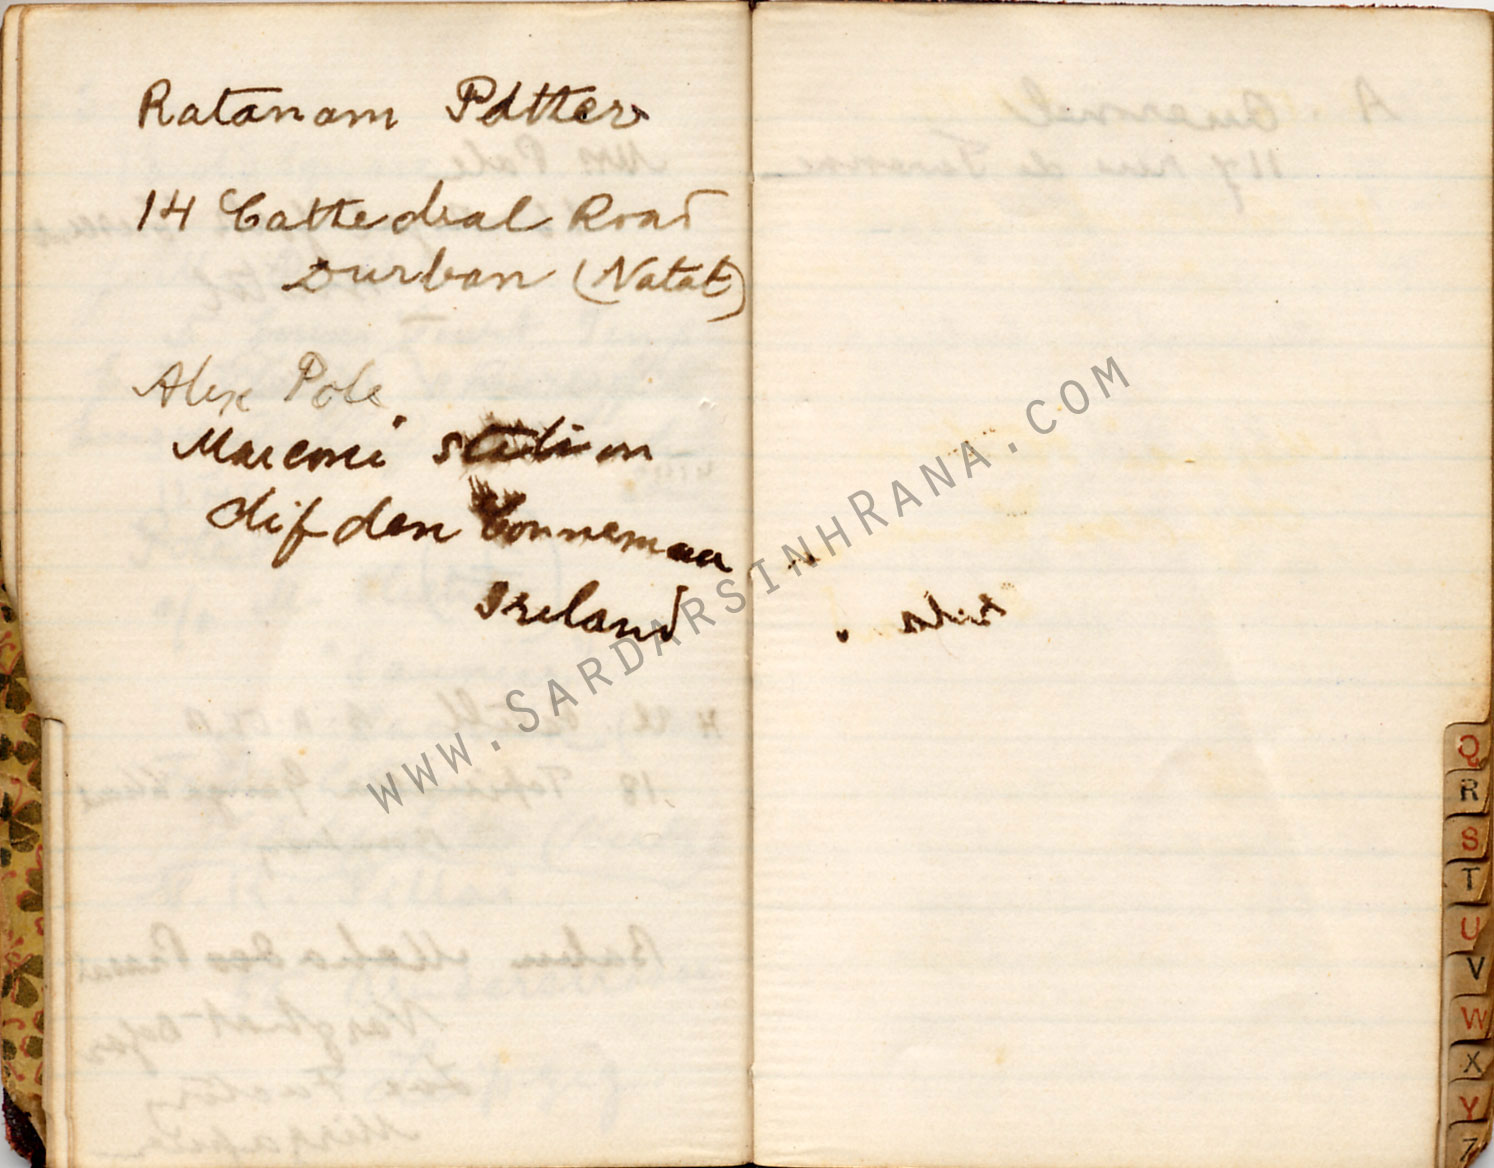 Ratanam Patter
14 Cathedral Road
Durban (Natal)
Alex Pole
Marconi station
Clifden Connemara
Ireland
WWW.SARDARSINHRANA.COM
Q
R
S
T
U
V
W
X
Y
Z